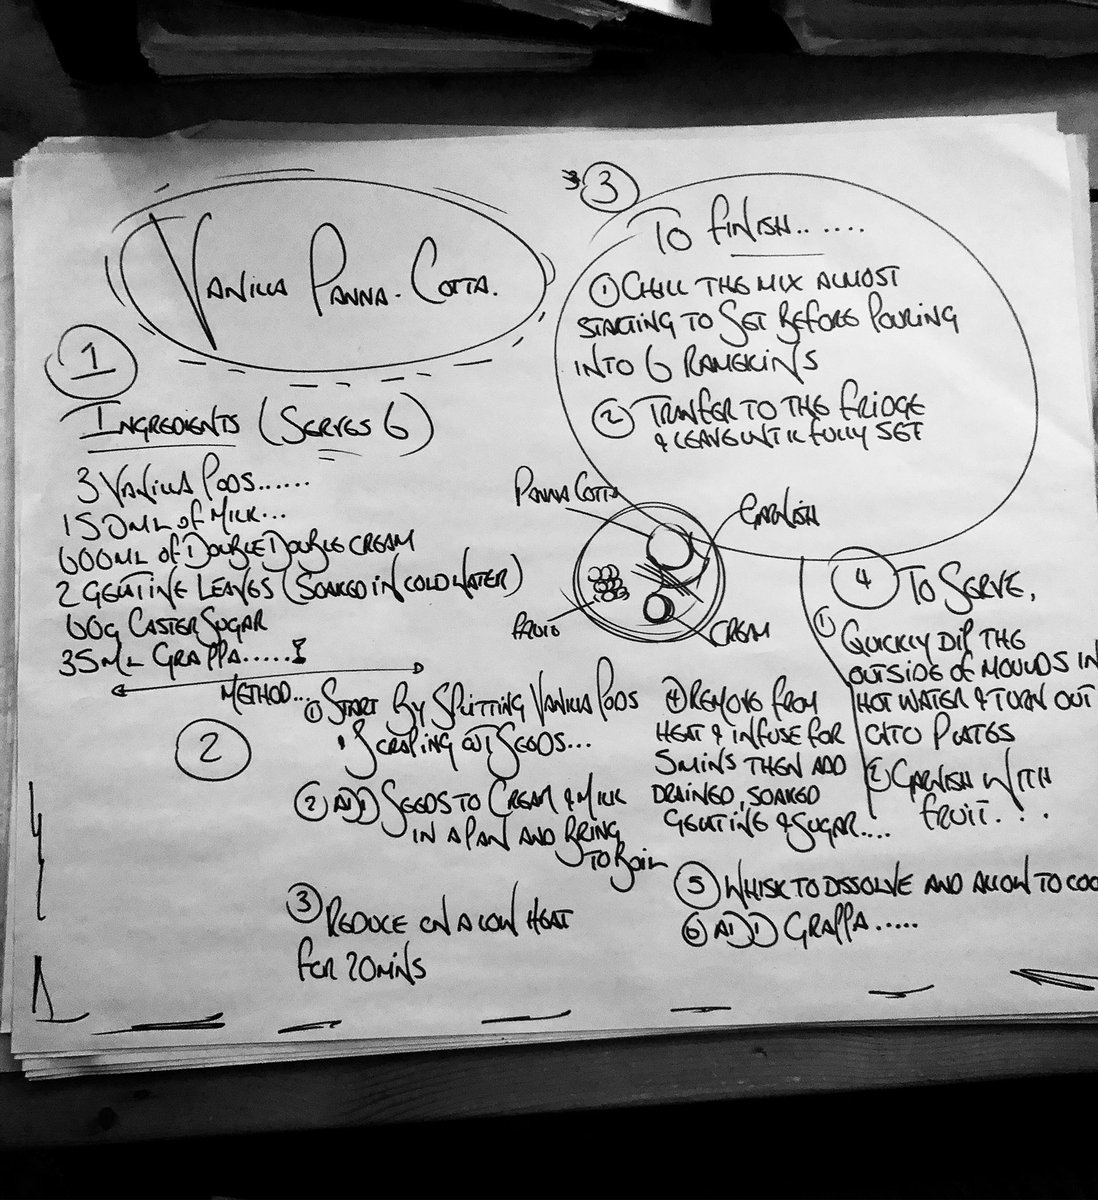 Vanilla Panna-Cotta.
1
Ingredients (Serves 6)
3 Vanilla Pods......
150ml of Milk...
600ml of Double Double Cream
2 Gelatine Leaves (Soaked in cold water)
60g Caster Sugar
35ml Grappa.....!
2
Method...
① Start By Splitting Vanilla Pods
& Scraping out Seeds...
② Add Seeds to Cream & Milk
in a pan and bring
to boil
③ Reduce on a low heat
for 20mins
④ Remove from
heat & infuse for
5mins then add
drained, soaked
gelatine & sugar....
⑤ Whisk to dissolve and allow to coo
⑥ Add Grappa.....
3
3
To Finish.. .....
① Chill the mix almost
starting to set before pouring
into 6 ramekins
② Tranfer to the fridge
& leave until fully set
Panna Cotta
Garnish
Fruit
Cream
4
To Serve,
① Quickly dip the
outside of moulds in
hot water & turn out
onto plates
② Garnish with
fruit. . .